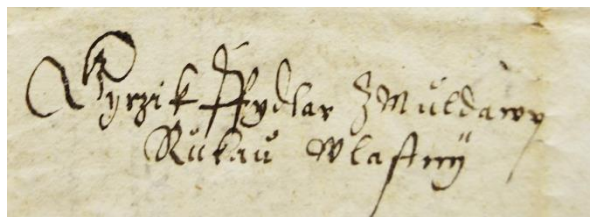 Gyrzik Ffydlar Z Můldawy
Rukau Wlastnij